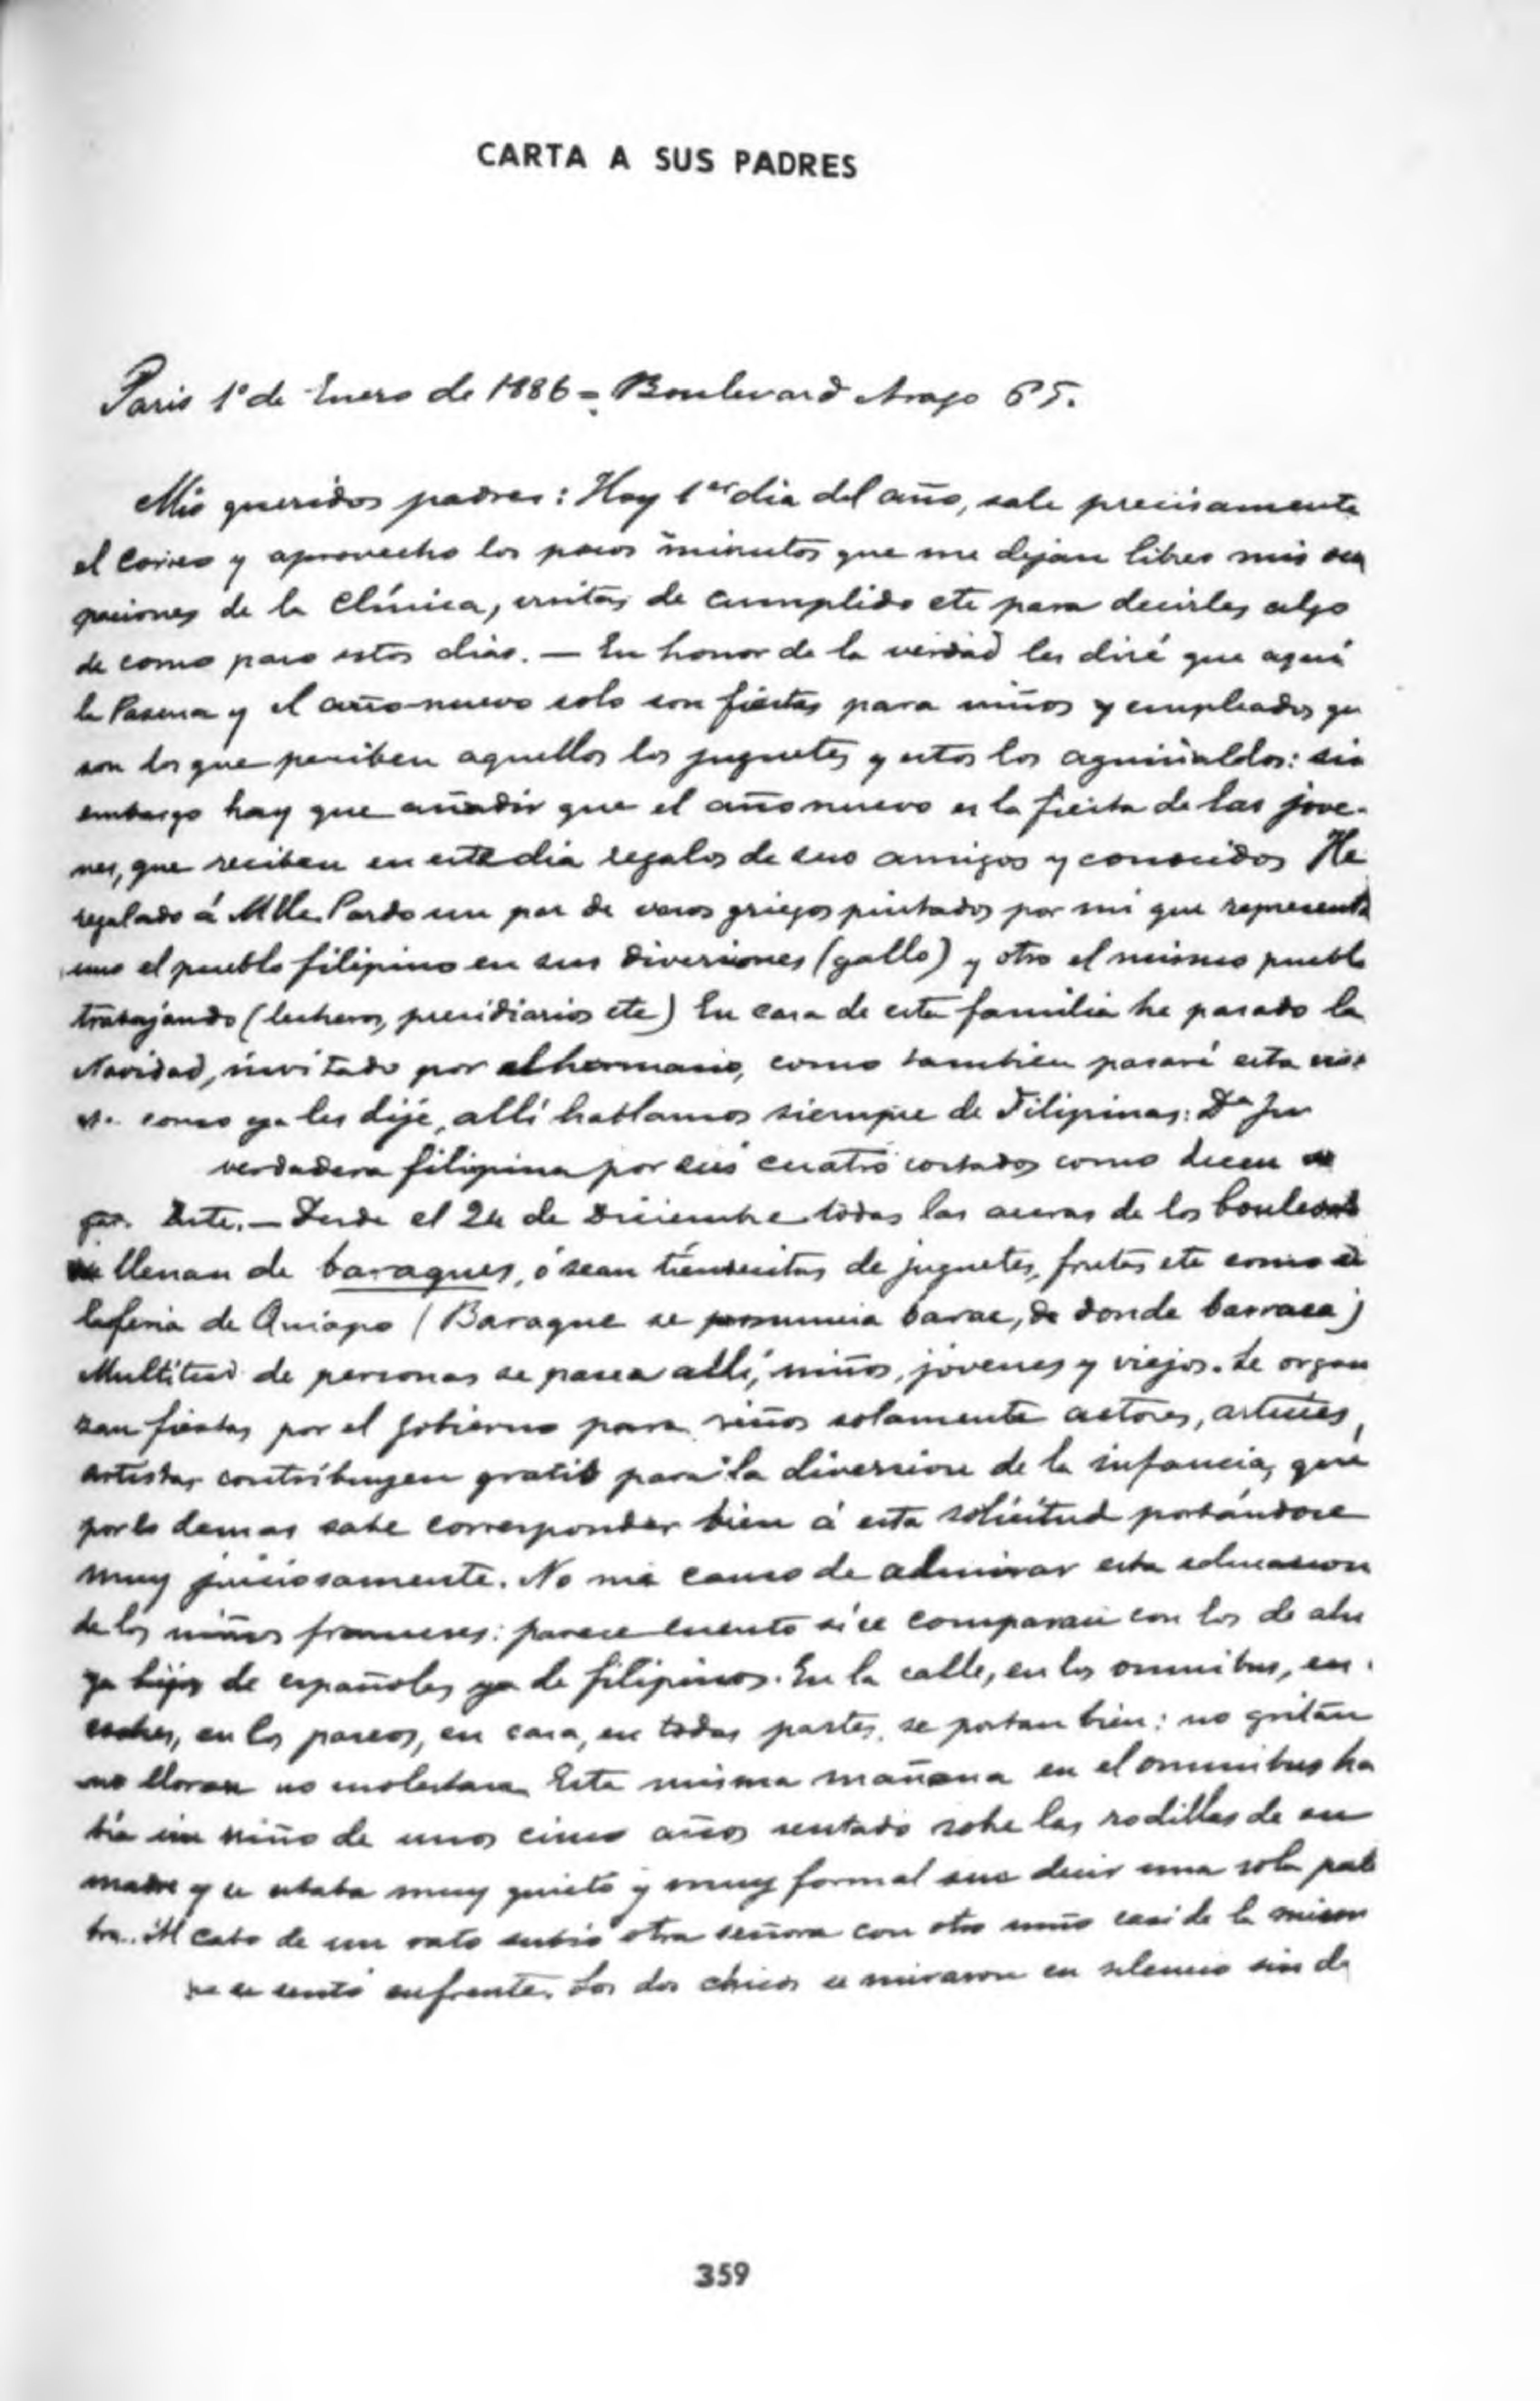 CARTA A SUS PADRES
Paris 1º de Enero de 1886 = Boulevard Arago 65.
Mis queridos padres: Hoy 1er dia del año, sale precisamente
el correo y aprovecho los pocos minutos que me dejan libres mis ocu
paciones de la Clínica, visitas de cumplido etc para decirles algo
de como paso estos dias. — En honor de la verdad les diré que aquí
la Pascua y el año-nuevo solo son fiestas para niños y empleados que
son los que perciben aquellos los juguetes y estos los aguinaldos: sin
embargo hay que añadir que el año nuevo es la fiesta de las jove-
nes, que reciben en este dia regalos de sus amigos y conocidos He
regalado á Mlle. Pardo un par de vasos griegos pintados por mi que representa
uno el pueblo filipino en sus diversiones (gallo) y otro el mismo pueblo
trabajando (lecheros, presidiarios etc) En casa de esta familia he pasado la
Navidad, invitado por el hermano, como tambien pasaré esta
como ya les dije, allí hablamos siempre de Filipinas: Dª Ju
verdadera filipina por sus cuatro costados como dicen
Este. — Desde el 24 de Diciembre todas las aceras de los boulevards
se llenan de baraques, ó sean tiendecitas de juguetes, frutas etc como en
la feria de Quiapo (Baraque se pronuncia barac, de donde barraca)
Multitud de personas se pasea allí, niños, jóvenes y viejos. Se organi
zan fiestas por el gobierno para niños solamente actores, actrices,
artistas contribuyen gratis para la diversion de la infancia, que
por lo demas sabe corresponder bien á esta solicitud portándose
muy juiciosamente. No me canso de admirar esta educacion
de los niños franceses: parece cuento si se comparan con los de ahi
ya hijos de españoles ya de filipinos. En la calle, en los omnibus, en
coches, en los paseos, en casa, en todas partes, se portan bien: no gritan
no lloran no molestan. Esta misma mañana en el omnibus ha
bía un niño de unos cinco años sentado sobre las rodillas de su
madre y se estaba muy quieto y muy formal sin decir una sola pala
bra. Al cabo de un rato subió otra señora con otro niño casi de la misma
se sentó enfrente. Los dos chicos se miraron en silencio sin de
359